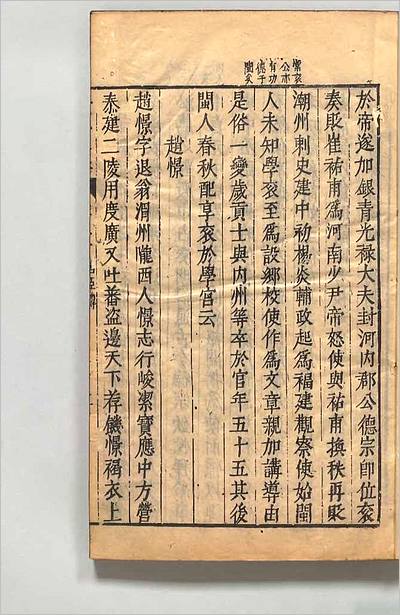 常袞
公亦
有功
德于
閩矣
於帝遂加銀青光祿大夫封河内郡公德宗即位袞
奏貶崔祐甫爲河南少尹帝怒使與祐甫換秩再貶
潮州刺史建中初楊炎輔政起爲福建觀察使始閩
人未知學袞至爲設鄉校使作爲文章親加講導由
是俗一變歲貢士與内州等卒於官年五十五其後
閩人春秋配享袞於學官云
趙憬
趙憬字退翁渭州隴西人憬志行峻潔寶應中方營
泰建二陵用度廣又吐蕃盗邊天下荐饑憬褐衣上